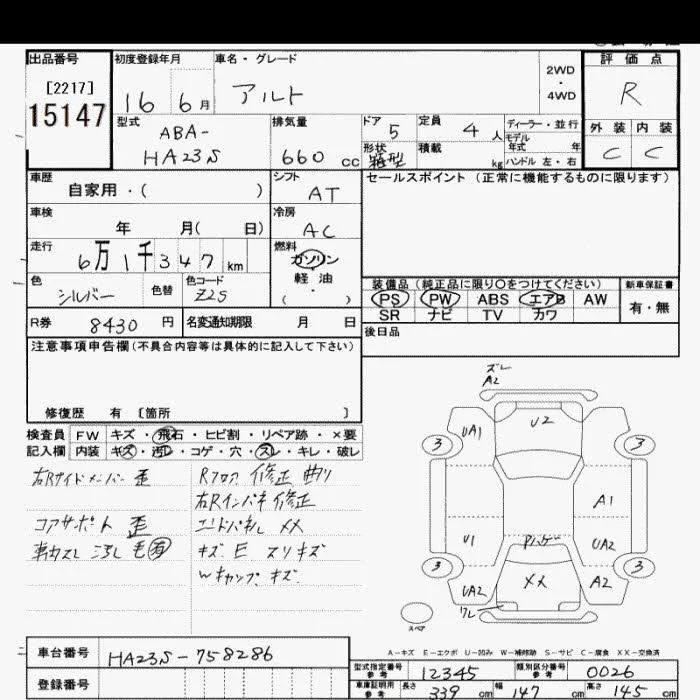 出品番号 初度登録年月 車名・グレード 評価点
[2217] 2WD
15147 16 6月 アルト ・ R
4WD
型式 排気量 ドア 定員 ディーラー・並行 外装 内装
ABA- 5 4人 モデル年式 年
HA23S 660cc 形状 箱型 積載 kg ハンドル 左・右 C C
車歴 シフト セールスポイント (正常に機能するものに限ります)
自家用・( ) AT
車検 冷房
年 月( 日) AC
走行 燃料
6万1千347km ガソリン
軽油
色 色替 色コード ( ・ )
シルバー Z2S
装備品 (純正品に限り○をつけてください) 新車保証書
PS PW ABS エアB AW 有・無
SR ナビ TV カワ
R券 8430円 名変通知期限 月 日 後日品
注意事項申告欄(不具合内容等は具体的に記入して下さい)
修復歴 有 [箇所 ]
検査員 FW キズ・飛石・ヒビ割・リペア跡・×要
記入欄 内装 キズ・汚レ・コゲ・穴・スレ・キレ・破レ
右Rサイドメンバー 歪 Rフロア 修正 曲リ
右Rインパネ 修正
コアサポート 歪 エンドパネル XX
キズ E スリキズ
Wキャップ キズ
ズレ
A2
UA1 U2
3 3
A1
U1 UA2
3 3
UA2 XX A2
ワレ
スペア
A-キズ E-エクボ U-凹み W-補修跡 S-サビ C-腐食 XX-交換済
車台番号 HA23S-758286
型式指定番号 参考 12345 類別区分番号 参考 0026
登録番号
車庫証明用 参考 長さ 339cm 幅 147cm 高さ 145cm